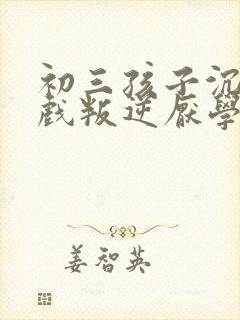 初三孩子沉
戲叛逆厭學
姜智英